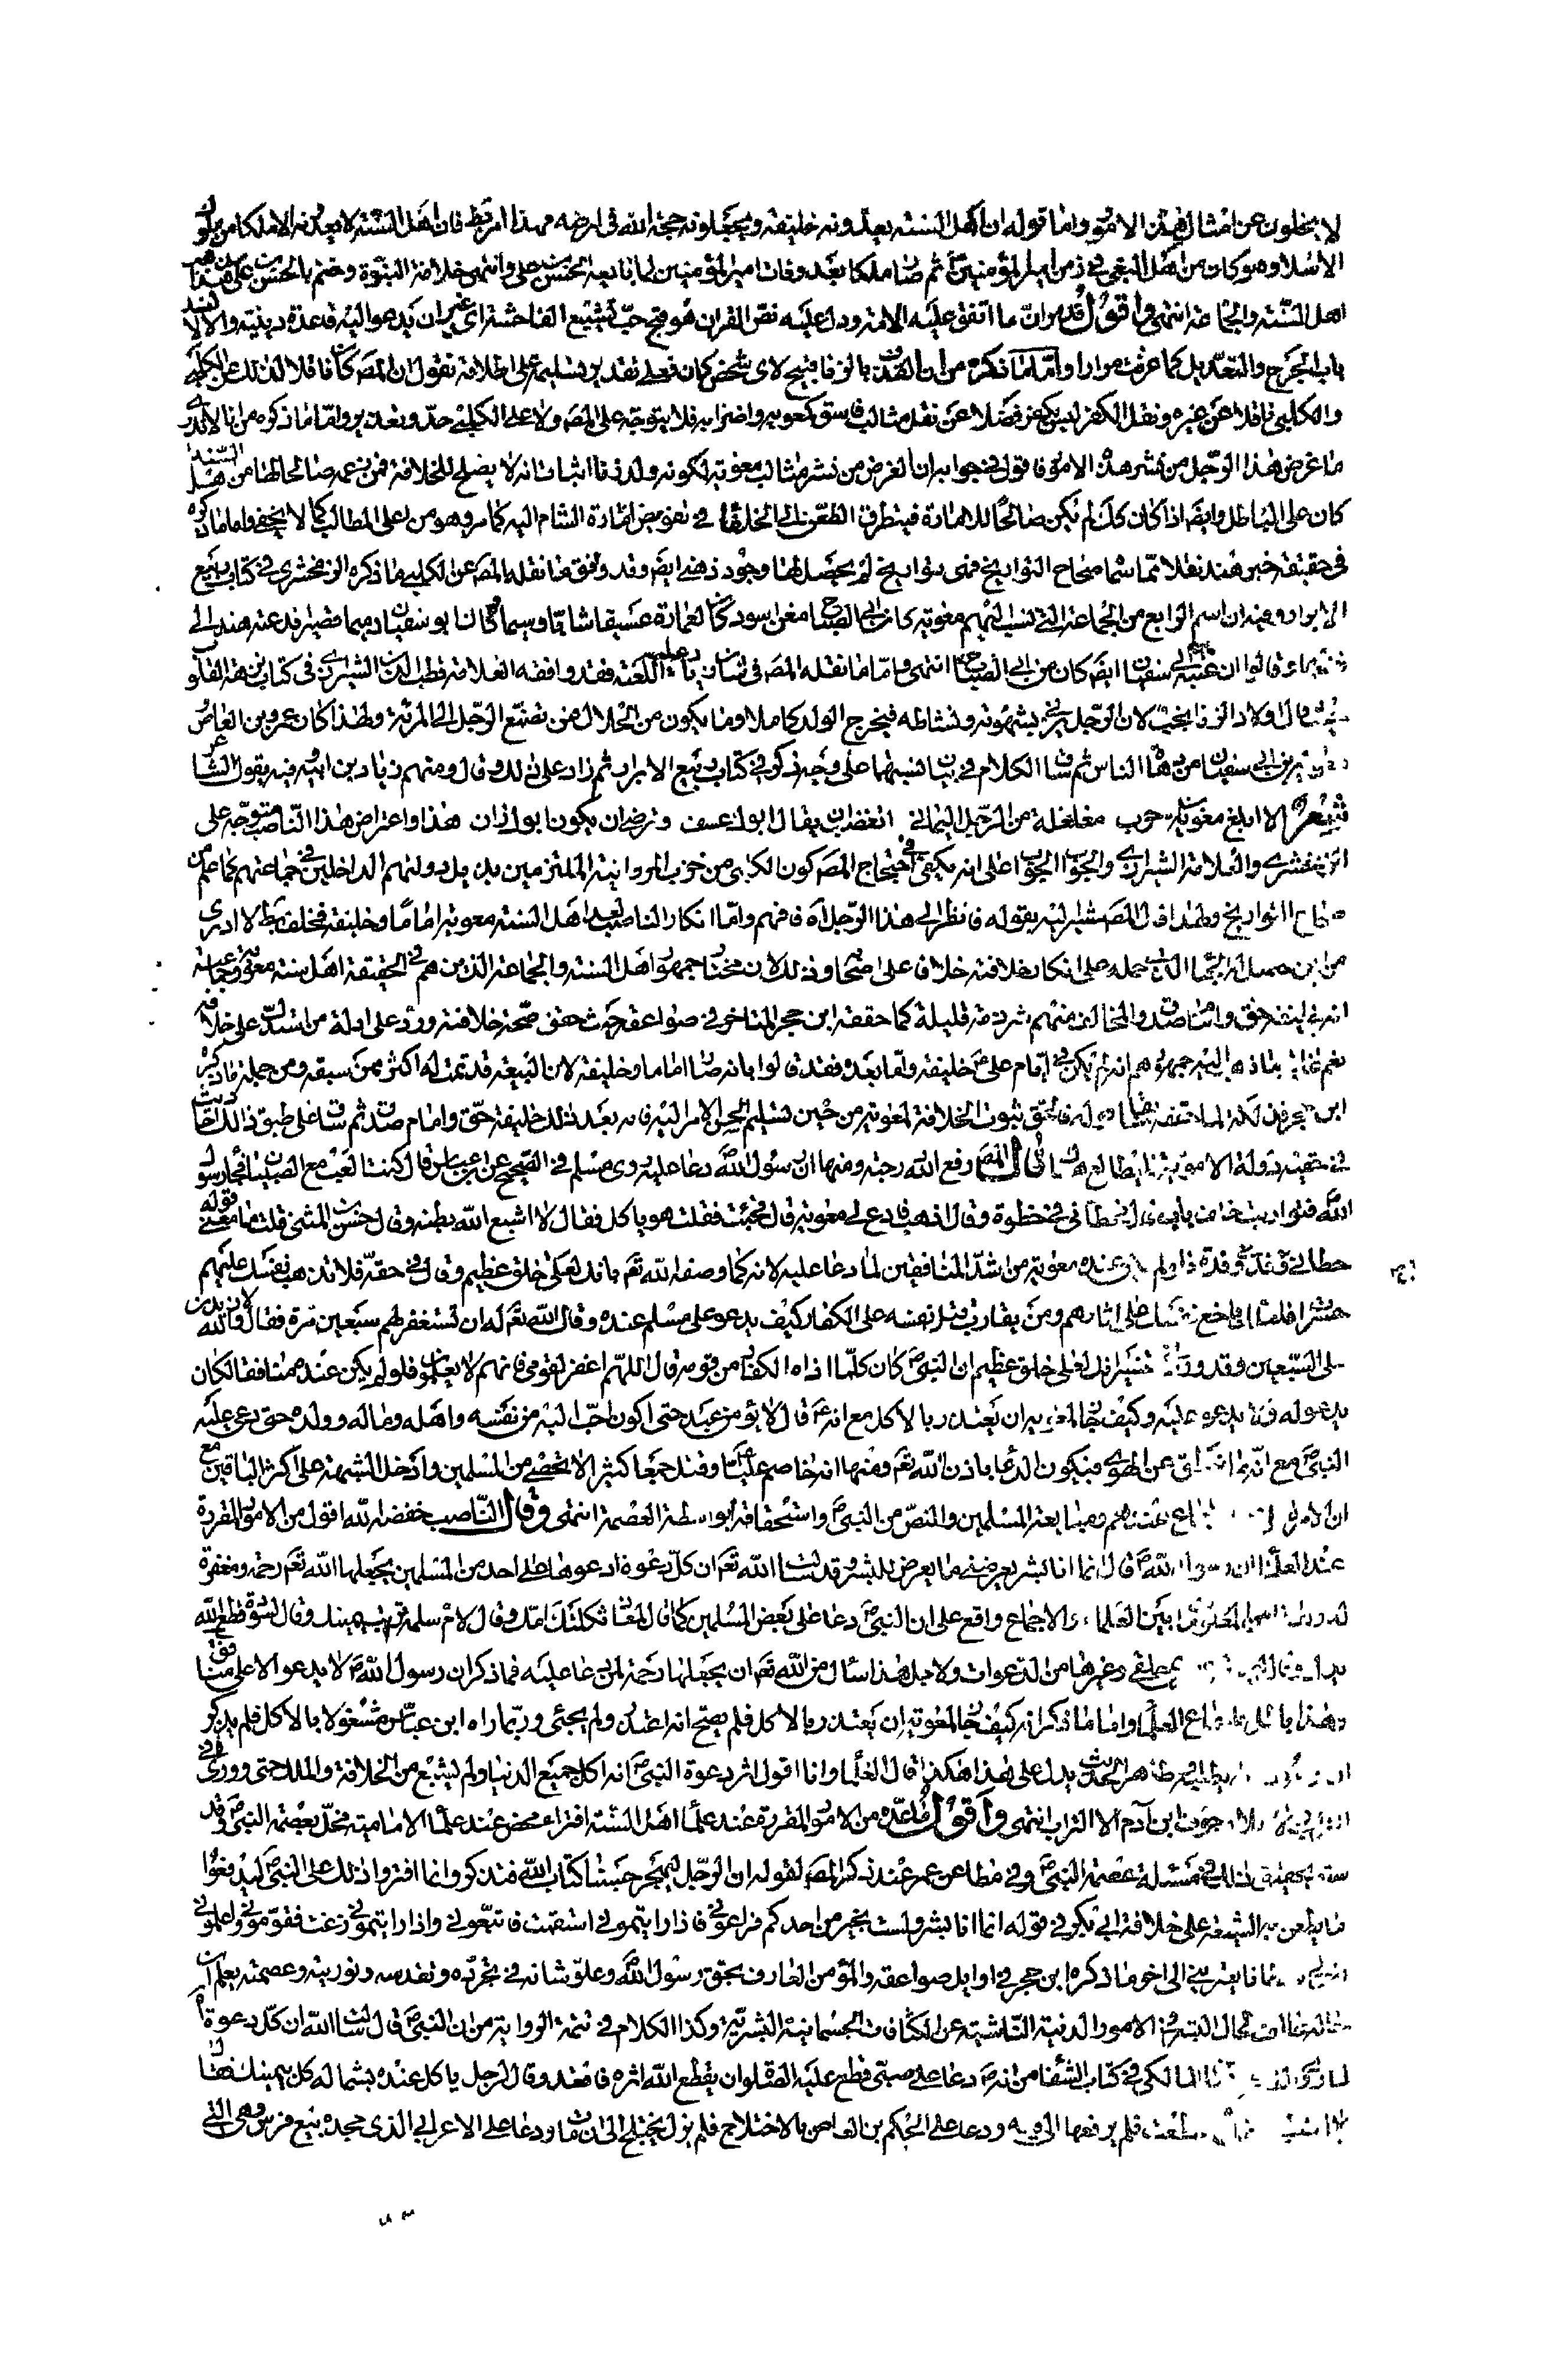 لا يخلون عن امثال هذه الامور واما قوله ان اهل السنة يعدونه خليفة ويجعلونه حجة الله في ارضه فهذا امر باطل فان اهل السنة لا يعدونه الا ملكا من ملوك
الاسلام وهو كان من اهل البغي في زمن امير المؤمنين ثم صار ملكا بعد وفات امير المؤمنين لما بايعه الحسن بن علي وانتهى خلافة النبوة وختم بالحسن بن علي هذا مذهب
اهل السنة والجماعة انتهى واقول قد مر ان ما اتفق عليه الامة ودل عليه نص القران هو قبح حب تشييع الفاحشة اى من غير ان يدعو اليه قاعدة دينية والا لا نسد
باب الجرح والتعديل كما عرفت مرارا واما ما ذكره من ان القذف بالزنا قبيح لاى شخص كان فعلى تقدير تسليمه على اطلاقه نقول ان المص كان ناقلا لذلك عن الكلبي
والكلبي ناقلا عن غيره ونقل الكفر ليس بكفر فضلا عن نقل مثالب فاسق كمعوية واضرابه فلا يتوجه على المص ولا على الكلبي حد وتعذير واما ما ذكره من انا لا ندرى
ما غرض هذا الرجل من نشر هذه الامور فاقول في جوابه ان الغرض من نشر مثالب معوية لكونه ولد زنا اثبات انه لا يصلح للخلافة فمن زعمه صالحا لها من اهل السنة
كان على الباطل وايضا اذا كان كذلك لم يكن صالحا للامارة فيتطرق الطعن الى الخلفا في تفويض امارة الشام اليه كما مر وهو من اعلى المطالب كما لا يخفى واما ما ذكره
في حقيقة خبر هند نقلا عما سماه صحاح التواريخ فهى تواريخ لم يحصل لها وجود ذهني ايضا وقد وافق فيما نقله المص عن الكلبي ما ذكره الزمخشري في كتاب ربيع
الابرار وفيه ان اسم الرابع من الجماعة التي نسب اليهم معوية كان ابي الصباح مغن اسود كان لعمارة عسيفا شابا وسيما وكان ابو سفيان دميما قصيرا فدعته هند الى
نفسها وقالوا ان عتبة بن ابي سفيان ايضا كان من ابي الصباح انتهى واما ما نقله المص في شان زياد عليه اللعنة فقد وافقه العلامة قطب الدين الشيرازي في كتاب نزهة القلوب
قال اولاد الزنا نجب لان الرجل يزني بشهوته ونشاطه فيخرج الولد كاملا وما يكون من الحلال فمن تصنع الرجل الى المرئة ولهذا كان عمرو بن العاص
ومعوية بن ابي سفيان من دهاة الناس ثم ساق الكلام في بيان نسبهما على وجه ذكر في كتاب ربيع الابرار ثم زاد على ذلك وقال ومنهم زياد بن ابيه فيه يقول الشاعر
شعر الا ابلغ معوية بن حرب مغلغلة من الرجل اليماني اتغضب ان يقال ابوك عف وترضى ان يكون ابوك زان هذا واعتراض هذا الناصب متوجه على
الزمخشري والعلامة الشيرازي والجواب الجواب على انه يكفي في احتجاج المص كون الكلبي من حزب المروانية الملتزمين بذيل دولتهم الداخلين في جماعتهم كما علم من
صحاح التواريخ ولهذا قال المص مشيرا اليه بقوله فانظر الى هذا الرجل اه فافهم واما انكار الناصب لعد اهل السنة معوية اماما وخليفة فخلف باطل لا ادرى
من اين حصل له الجهل الذي حمله على انكار خلافته خلافا على اصحابه وذلك لان مختار جمهور اهل السنة والجماعة الذين هم في الحقيقة اهل سنة معوية وجماعته
انه خليفة حق وامام صدق والمخالف منهم شرذمة قليلة كما حققه ابن حجر المتاخر في صواعقه حيث حقق صحة خلافته ورد على ادلة من استدل على خلافه
نعم غاية ما ذهب اليه جمهورهم انه لم يكن في ايام علي خليفة واما بعده فقد قالوا بانه صار اماما وخليفة لان البيعة قد تمت له اكثر ممن سبقه ومن جملة ما ذكره
ابن حجر فالحق ثبوت الخلافة لمعوية من حين تسليم الحسن الامر اليه فانه بعد ذلك خليفة حق وامام صدق ثم ساق على طبق ذلك احاديث
قال المص رفع الله درجته ومنها ان رسول الله دعا عليه روى مسلم في الصحيح عن ابن عباس قال كنت العب مع الصبيان فجاء رسول
الله فتواريت خلف باب فحطاني حطوة وقال اذهب فادع لي معوية قال فجئت فقلت هو ياكل فقال لا اشبع الله بطنه وقال حسن بن المثنى قلت ما معنى قوله
حطاني قال وقدني وقدة فلو لم يكن عنده معوية من اشد المنافقين لما دعا عليه لانه كما وصفه الله تعم بانك لعلى خلق عظيم وقال في حقه فلا تذهب نفسك عليهم
حسرات فلعلك باخع نفسك على اثارهم ومن يقارب قتل نفسه على الكفار كيف يدعو على مسلم عنده وقال الله تعم له ان تستغفر لهم سبعين مرة فقال والله لازيدن
على السبعين وقد ورد في تفسير انك لعلى خلق عظيم ان النبي ص كان كلما اذاه الكفار من قومه قال اللهم اغفر لقومي فانهم لا يعلمون فلو لم يكن عنده منافقا لكان
يدعو له ولا يدعو عليه وكيف جاز لمعوية ان يعتذر بالاكل مع انه ع قال لا يؤمن عبد حتى اكون احب اليه من نفسه واهله وماله وولده حق دعى عليه
النبي ص مع انه لا ينطق عن الهوى فيكون الدعا باذن الله تعم ومنها انه خاصم عليا وقتل جمعا كثيرا لا يحصى من المسلمين وادخل الشبهة على اكثر الباقين مع
ان امامة علي ثبت باجماع عندهم ومبايعة المسلمين والنص من النبي ص واستحقاقه بواسطة العصمة انتهى وقال الناصب خفضه الله اقول من الامور المقررة
عند العلماء ان رسول الله قال انما انا بشر يعرضني ما يعرض للبشر وقد سالت الله تعم ان كل دعوة ادعوها على احد من المسلمين يجعلها الله تعم رحمة ومغفرة
بين العلماء والاجماع واقع على ان النبي ص دعا على بعض المسلمين كما قال لمعاذ ثكلتك امك وقال لام سلمة تربت يمينك وقال لسودة قطع الله
يدك وقال عقرى حلقى وغيرها من الدعوات ولاجل هذا سال من الله تعم ان يجعلها رحمة لمن دعا عليه فما ذكر ان رسول الله ص لا يدعو الا على منافق
وهذا باطل باجماع العلماء واما ما ذكر انه كيف جاز لمعوية ان يعتذر بالاكل فلم يصح انه اعتذر ولم يجئ وربما راه ابن عباس مشغولا بالاكل فلم يذكر
ظاهر الحديث يدل على هذا هكذا قال العلماء وانا اقول اثر دعوة النبي ص انه اكل جميع الدنيا ولم يشبع من الخلافة والملك حتى وورى في
جوف ابن آدم الا التراب انتهى واقول ما عده من الامور المقررة عند علماء اهل السنة افتراء محض عند علماء الامامية مخل بعصمة النبي ص وقد
سبق تحقيق ذلك في مسئلة عصمة النبي ص وفي مطاعن عمر عند ذكر المص لقوله ان الرجل ليهجر حسبنا كتاب الله فتذكر وانما افتروا ذلك على النبي ليدفعوا
ما يطعن به الشيعة على خلافة ابي بكر في قوله انما انا بشر ولست بخير من احدكم فراعوني فاذا رايتموني استقمت فاتبعوني واذا رايتموني زغت فقوموني واعلموا ان
لي شيطانا يعتريني الى اخر ما ذكره ابن حجر في اوايل صواعقه والمؤمن العارف بحق رسول الله وعلو شانه في تجرده وتقدسه ونوريته وعصمته يعلم ان
الامور الدنية الناشية عن الكثافات الجسمانية البشرية وكذا الكلام في تتمة الرواية من ان النبي ص قال سالت الله ان كل دعوة اه
لما ذكره القاضي المالكي في كتاب الشفا من انه ص دعا على صبي قطع عليه الصلوة ان يقطع الله اثره فاقعد وقال لرجل ياكل عنده بشماله كل بيمينك فقال
لا استطيع فقال لا استطعت فلم يرفعها الى فيه ودعا على الحكم بن العاص بالاختلاج فلم يزل يختلج الى ان مات ودعا على الاعرابي الذي جحده بيع فرس وهى التي